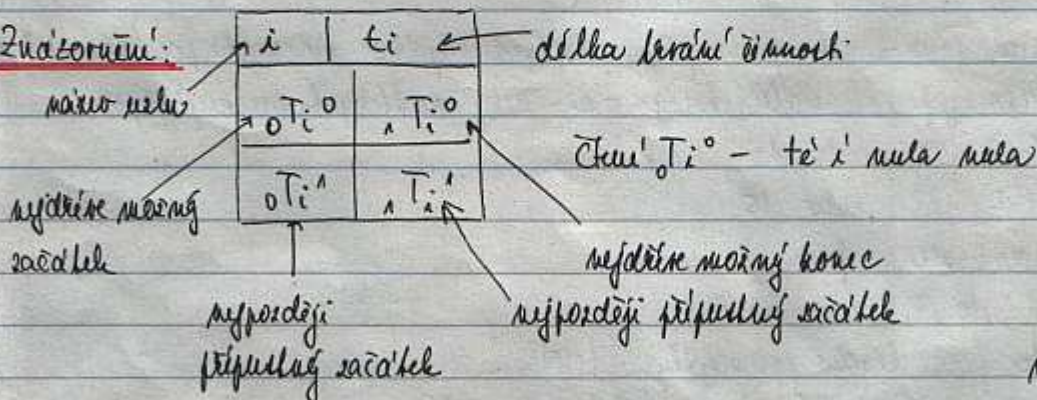 Znázornění:
i | ti
délka trvání činnosti
název uzlu
₀Ti⁰ | ₁Ti⁰
Čtení ₀Ti⁰ - té i nula nula
₀Ti¹ | ₁Ti¹
nejdříve možný
začátek
nejdříve možný konec
nejpozději
přípustný začátek
nejpozději přípustný začátek